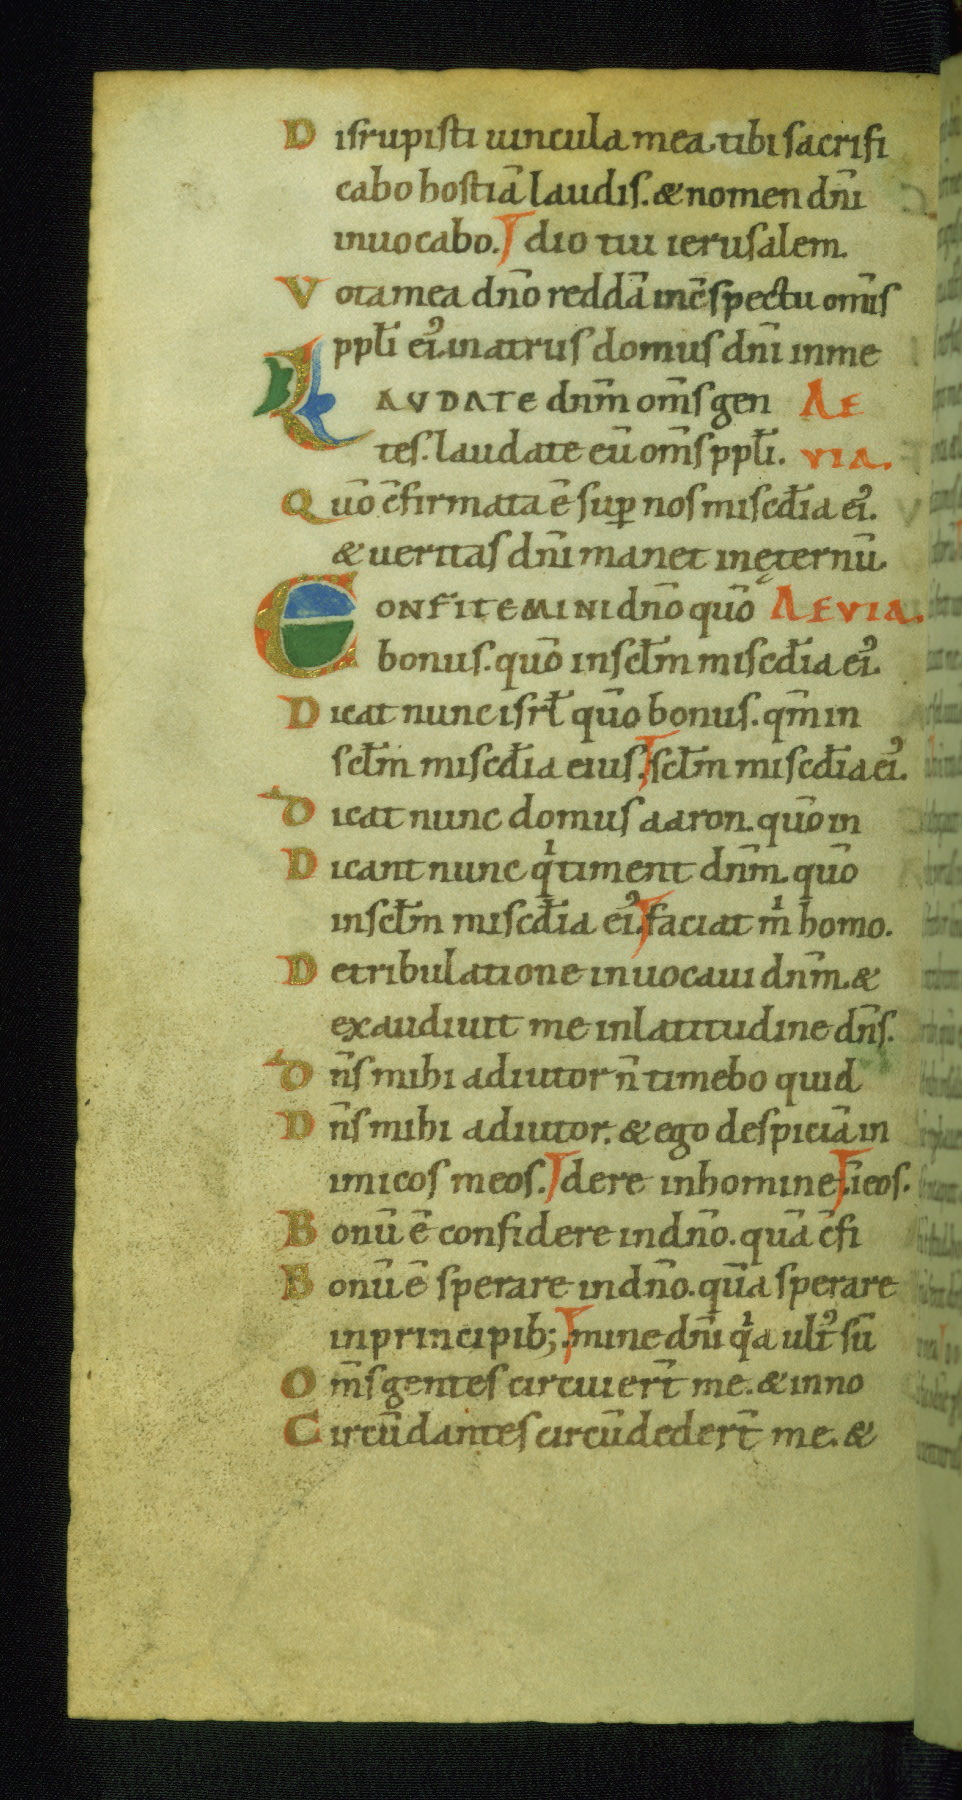 Disrupisti uincula mea. tibi sacrifi
cabo hostiā laudis. & nomen dn̄i
inuocabo. dio tui ierusalem.
Vota mea dn̄o reddā in c̄spectu om̄is
ppl̄i ei᾽. in atriis domus dn̄i in me
LAVDATE dn̄m om̄s gen AE
tes. laudate eū om̄s ppl̄i. VIA.
Qūo c̄firmata ē suꝑ nos misc̄dia ei᾽.
& ueritas dn̄i manet in ęternū.
CONFITEMINI dn̄o qūo AEVIA.
bonus. qūo in scl̄m misc̄dia ei᾽.
Dicat nunc isrl̄ qūo bonus. qm̄ in
scl̄m misc̄dia eius. scl̄m misc̄dia ei᾽.
Dicat nunc domus aaron. qūo in
Dicant nunc qⁱ timent dn̄m. qūo
in scl̄m misc̄dia ei᾽. faciat mⁱ homo.
De tribulatione inuocaui dn̄m. &
exaudiuit me in latitudine dn̄s.
Dn̄s mihi adiutor n̄ timebo quid
Dn̄s mihi adiutor. & ego despiciā in
imicos meos. dere in homine. icos.
Bonū ē confidere in dn̄o. quā c̄fi
Bonū ē sperare in dn̄o. quā sperare
in principib; mine dn̄i qⁱa ult᾽ sū
Om̄s gentes circuiert̄ me. & in no
Circūdantes circūdedert̄ me. &